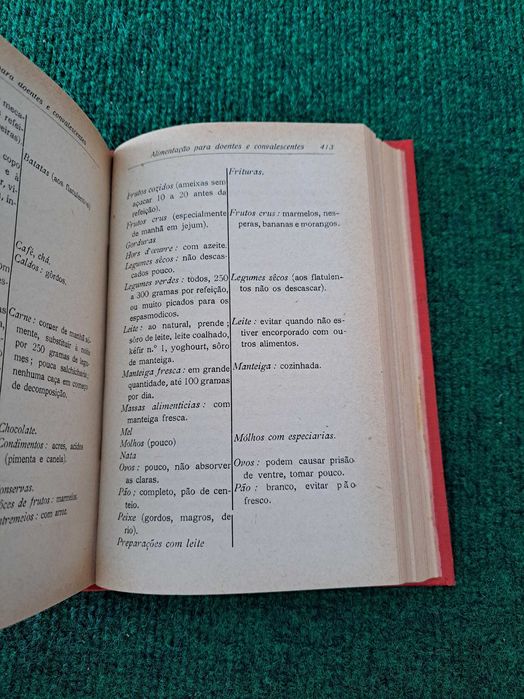 para doentes e convalescentes
Batatas (aos flatulentos).
Café, chá.
Caldos: gordos.
Carne: comer de manhã sò-
mente, substituir à noite
por 250 gramas de legu-
mes; pouca salchicharia;
nenhuma caça em começo
de decomposição.
Chocolate.
Condimentos: acres, acides
(pimenta e canela).
onservas.
ôces de frutos: marmelos.
ntremeios: com arroz.
Alimentação para doentes e convalescentes 413
Frutos cozidos (ameixas sem
açucar 10 a 20 antes da
refeição).
Frutos crus (especialmente
de manhã em jejum).
Gorduras
Hors d'œuvre: com azeite.
Legumes sêcos: não descas-
cados pouco.
Legumes verdes: todos, 250
a 300 gramas por refeição,
ou muito picados para os
espasmodicos.
Leite: ao natural, prende;
sôro de leite, leite coalhado,
kéfir n.º 1, yoghourt, sôro
de manteiga.
Manteiga fresca: em grande
quantidade, até 100 gramas
por dia.
Massas alimenticias: com
manteiga fresca.
Mel
Môlhos (pouco)
Nata
Ovos: pouco, não absorver
as claras.
Pão: completo, pão de cen-
teio.
Peixe (gordos, magros, de
rio).
Preparações com leite
Frituras.
Frutos crus: marmelos, nes-
peras, bananas e morangos.
Legumes sêcos (aos flatulen-
tos não os descascar).
Leite: evitar quando não es-
tiver encorporado com ou-
tros alimentos.
Manteiga: cozinhada.
Môlhos com especiarias.
Ovos: podem causar prisão
de ventre, tomar pouco.
Pão: branco, evitar pão
fresco.